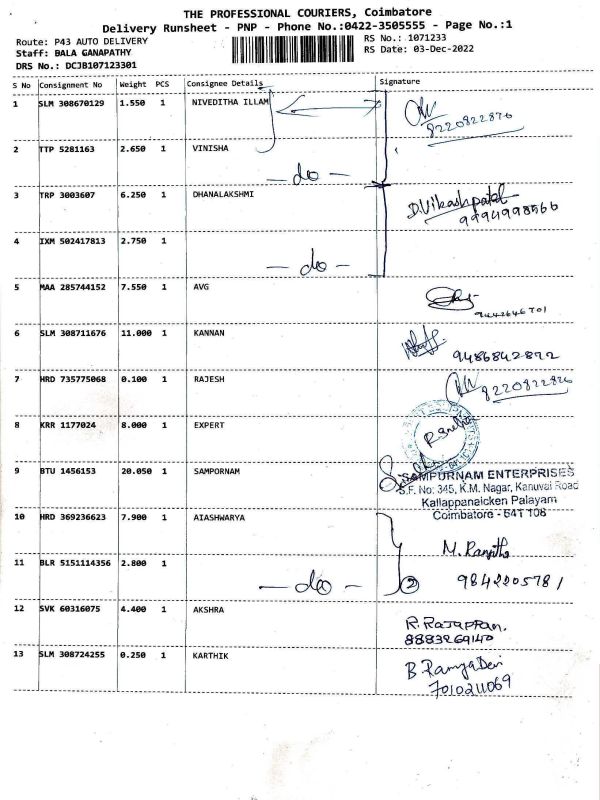 THE PROFESSIONAL COURIERS, Coimbatore
Delivery Runsheet - PNP - Phone No.:0422-3505555 - Page No.:1
Route: P43 AUTO DELIVERY
RS No.: 1071233
Staff: BALA GANAPATHY
RS Date: 03-Dec-2022
DRS No.: DCJB107123301
S No Consignment No Weight PCS Consignee Details Signature
1 SLM 308670129 1.550 1 NIVEDITHA ILLAM
8220822876
2 TTP 5281163 2.650 1 VINISHA
- do -
3 TRP 3003607 6.250 1 DHANALAKSHMI D.Vikashpatel
9994998566
4 IXM 502417813 2.750 1
- do -
5 MAA 285744152 7.550 1 AVG
9442646701
6 SLM 308711676 11.000 1 KANNAN
9486842872
7 HRD 735775068 0.100 1 RAJESH 8220822826
8 KRR 1177024 8.000 1 EXPERT
9 BTU 1456153 20.050 1 SAMPORNAM
SAMPURNAM ENTERPRISES
S.F. No: 345, K.M. Nagar, Kanuvai Road
Kallappanaicken Palayam
Coimbatore - 641 108
10 HRD 369236623 7.900 1 AIASHWARYA
M. Ranjitha
11 BLR 5151114356 2.800 1
- do - 2 9842205781
12 SVK 60316075 4.400 1 AKSHRA
8883269140
13 SLM 308724255 0.250 1 KARTHIK
B. RamyaDevi
7010211069